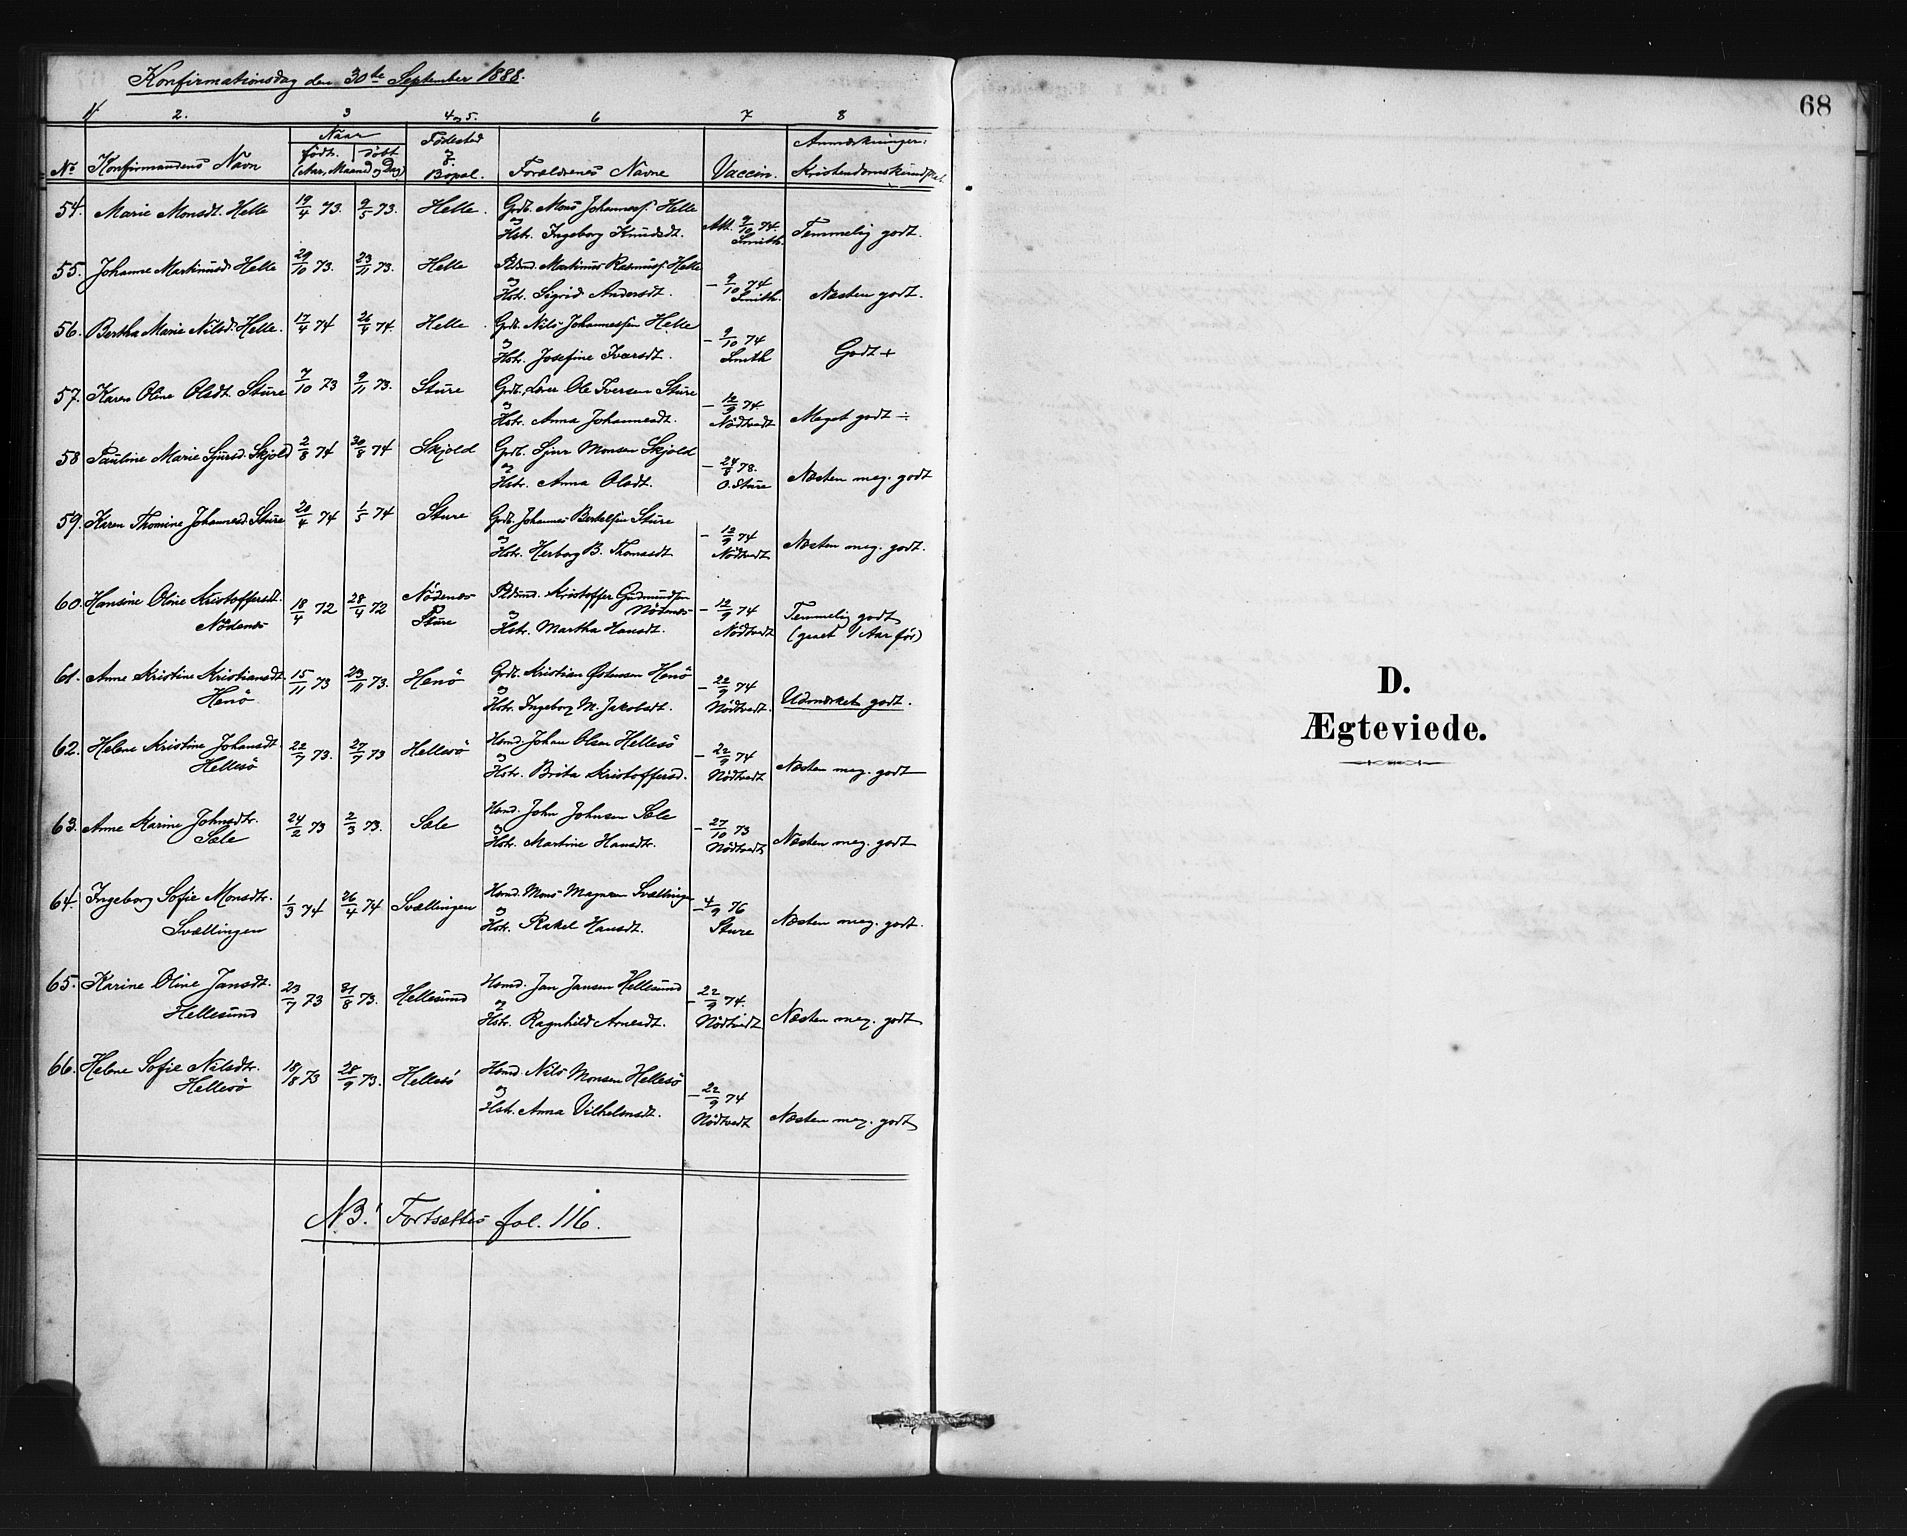 Konfirmationsdag den 30te September 1888.
1 2. 3 4 og 5. 6 7 8
No Konfirmandens Navn Naar født. døbt (Aar, Maaned og Dag) Fødested og Bopæl. Forældrenes Navne Vaccin. Anmærkninger: Kristendomskundskab.
54. Marie Monsdt. Helle 19/4 73. 9/5 73. Helle. Grdb. Mons Johanness. Helle
og Hstr. Ingeborg Knudsdt. Att. 9/10 74. Smith. Temmelig godt.
55. Johanne Martinusd. Helle 29/10 73. 23/11 73. Helle Plsmd. Martinus Rasmuss. Helle
og Hstr. Sigrid Andersdt. - 9/10 74 Smith. Næsten godt.
56. Bertha Marie Nilsd. Helle. 17/4 74 26/4 74. Helle. Grdb. Nils Johannessen Helle
og Hstr. Josefine Iversdt. - 9/10 74 Smith Godt +
57. Karen Oline Olsdt. Sture 7/10 73 9/11 73. Sture Grdb. Ole Iversen Sture
og Hstr. Anna Johannesdt. - 12/9 74. Nödtvedt Meget godt ÷
58 Pauline Marie Sjursd. Skjold 2/8 74 30/8 74 Skjold Grdb. Sjur Monsen Skjold
og Hstr. Anna Olsdt. - 24/8 78. O. Sture Næsten meg. godt
59. Karen Thomine Johannesd. Sture 20/4 74 1/5 74 Sture Grdb. Johannes Bertelsen Sture
og Hstr. Herborg B. Thomasdt. - 12/9 74 Nödtvedt Næsten meg. godt.
60. Hansine Oline Kristoffersdt. Nödenes 18/4 72 28/4 72 Nödenes Sture Plsmd. Kristoffer Gudmundsen Nödenes
og Hstr. Martha Hansdt. - 12/9 74 Nödtvedt Temmelig godt (1 Aar før)
61. Anne Kristine Kristiansdt. Henö 15/11 73 23/11 73. Henö Grdb. Kristian Østensen Henö
og Hstr. Ingeborg M. Jakobsdt. - 22/9 74 Nödtvedt. Udmærket godt.
62. Helene Kristine Johansdt. Hellesö 22/7 73. 27/7 73 Hellesö Hsmd. Johan Olsen Hellesö
og Hstr. Brita Kristoffersd. - 22/9 74 Nödtvedt Næsten meg. godt
63. Anne Karine Johnsdtr. Sæle 24/2 73 2/3 73. Sæle Hsmd. John Johnsen Sæle
og Hstr. Martine Hansdtr. - 27/10 73 Nödtvedt Næsten meg. godt
64. Ingeborg Sofie Monsdtr. Svællingen 1/3 74 26/4 74 Svællingen Hsmd. Mons Magnesen Svællingen
og Hstr. Rakel Hansdt. - 4/9 76 Sture Næsten meg. godt.
65. Karine Oline Jansdt. Hellesund 23/7 73 31/8 73. Hellesund Hsmd. Jan Jansen Hellesund
og Hstr. Ragnhild Arnesdt. - 22/9 74. Nödtvedt Næsten meg. godt
66. Helene Sofie Nilsdtr. Hellesö 18/8 73 28/9 73. Hellesö Hsmd. Nils Monsen Hellesö
og Hstr. Anna Vilhelmsdt. - 22/9 74 Nödtvedt Næsten meg. godt
NB! Fortsættes fol. 116.
68
D.
Ægteviede.